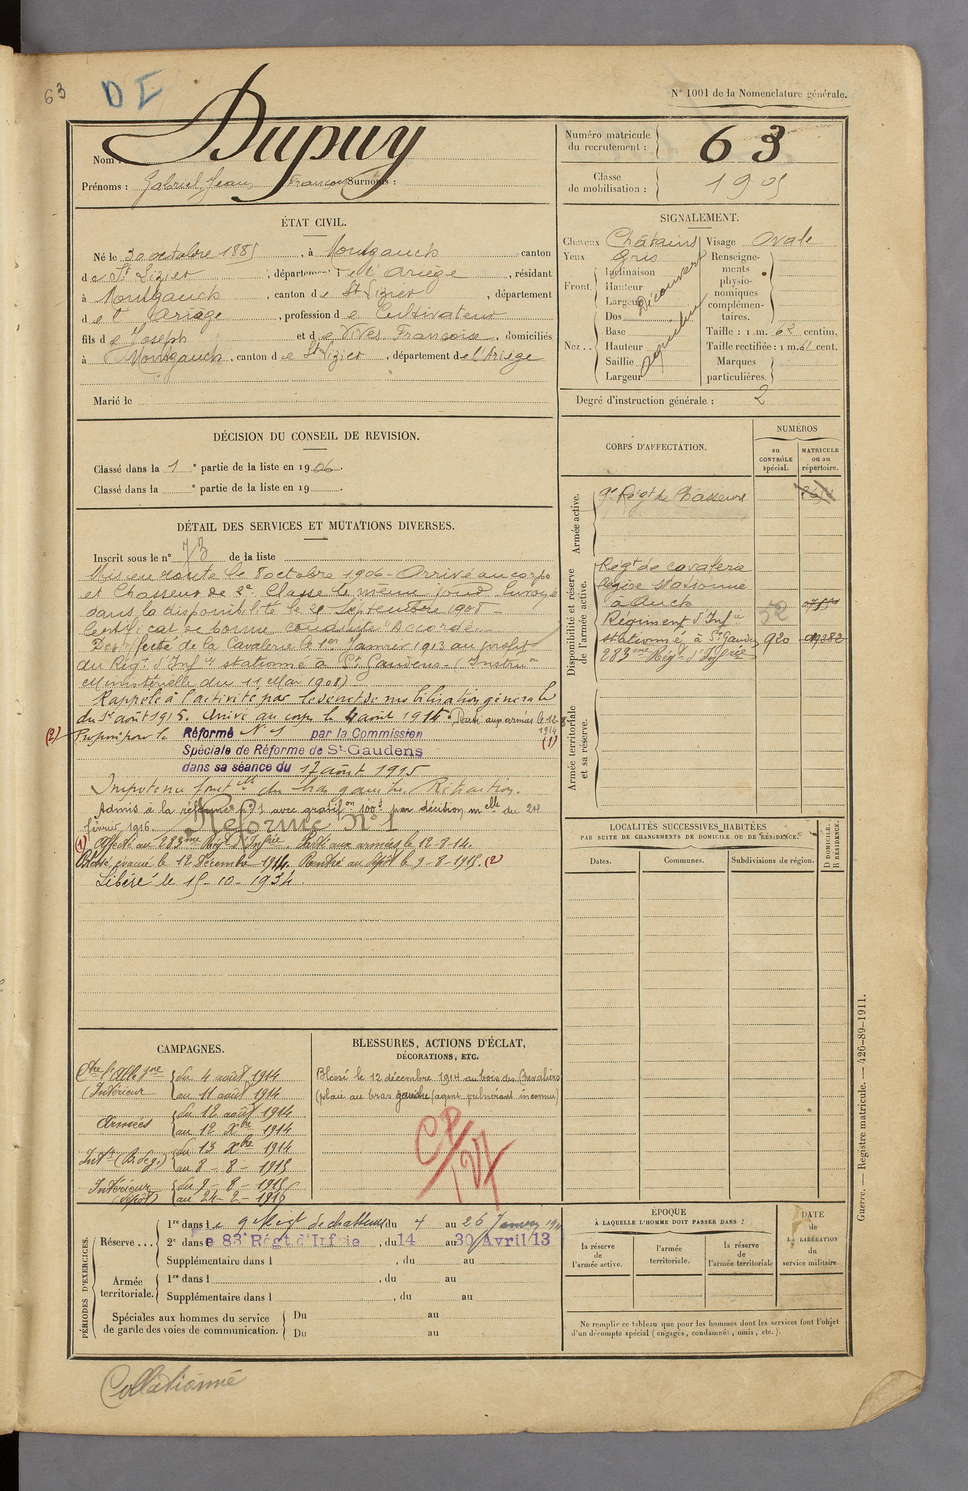 63
DI
N° 1001 de la Nomenclature générale.
Nom : Dupuy
Prénoms : Gabriel Jean François Surnoms :
Numéro matricule du recrutement : 63
Classe de mobilisation : 1905
ÉTAT CIVIL.
Né le 30 octobre 1885, à Montgauch, canton
de St Lizier, département de l'Ariège, résidant
à Montgauch, canton de St Lizier, département
de l'Ariège, profession de Cultivateur
fils de Joseph et de Vives Françoise, domiciliés
à Montgauch, canton de St Lizier, département de l'Ariège
Marié le
SIGNALEMENT.
Cheveux Châtains Visage Ovale
Yeux Gris
Front. Inclinaison Hauteur Largeur Découvert
Nez.. Dos Base Hauteur Saillie Largeur
Renseignements physionomiques complémentaires.
Taille : 1 m. 62 centim.
Taille rectifiée : 1 m. 61 cent.
Marques particulières.
Degré d'instruction générale : 2
DÉCISION DU CONSEIL DE REVISION.
Classé dans la 1 e partie de la liste en 1906.
Classé dans la e partie de la liste en 19 .
CORPS D'AFFECTATION.
NUMÉROS
au CONTRÔLE spécial.
MATRICULE ou au répertoire.
Armée active.
9e Régt de Chasseurs
Disponibilité et réserve de l'armée active.
Régt de cavalerie
légère Stationné
à Auch
Régiment d'Infie 52
stationné à St Gaudens 920
283me Régt d'Infrie
Armée territoriale et sa réserve.
DÉTAIL DES SERVICES ET MUTATIONS DIVERSES.
Inscrit sous le n° 73 de la liste
Mis en route le 8 octobre 1906 - Arrivé au corps
et Chasseur de 2e Classe le même jour. Envoyé
dans la disponibilité le 28 Septembre 1908 -
Certificat de bonne conduite "Accordé"
Désaffecté de la Cavalerie le 1er Janvier 1913 au profit
du Régt d'Infie stationné à St Gaudens - (Instruon
Ministérielle du 11 Mai 1908)
Rappelé à l'activité par le décret de mobilisation générale
du 1er août 1915. Arrivé au corps le 4 août 1914. Parti aux armées le 12-
1914 (1)
(2) Proposé pour la Réformé N° 1 par la Commission
Spéciale de Réforme de St-Gaudens
dans sa séance du 17 août 1915
Impotence fonctlle du bras gauche, Rétraction.
Admis à la réforme n° 1 avec gratifon 100f par décision mlle du 24
février 1916 Réforme N° 1
(1) Affecté au 283me Régt d'Infrie. Parti aux armées le 12-8-14.
Blessé, évacué le 12 Décembre 1914. Rentré au dépôt le 9-8-1915. (2)
Libéré le 15-10-1934.
LOCALITÉS SUCCESSIVES HABITÉES
PAR SUITE DE CHANGEMENTS DE DOMICILE OU DE RÉSIDENCE.
Dates.
Communes.
Subdivisions de région.
D DOMICILE. R RÉSIDENCE.
CAMPAGNES.
Ctre l'Allemgne
Intérieur du 4 août 1914
au 11 août 1914
Armées du 12 août 1914
au 12 Xbre 1914
Intr (B. de g.) du 13 Xbre 1914
au 8-8-1915
Intérieur (dépôt) du 9-8-1915
au 24-2-1916
BLESSURES, ACTIONS D'ÉCLAT,
DÉCORATIONS, ETC.
Blessé le 12 décembre 1914 au bois des Chevaliers
(plaie au bras gauche (agent vulnérant inconnu)
PÉRIODES D'EXERCICES.
Réserve ... 1re dans le 9e Régt de chasseurs du 4 au 26 Janvier
2e dans le 83e Régt d'Infrie, du 14 au 30 Avril 13
Supplémentaire dans l , du au
Armée territoriale. 1re dans l , du au
Supplémentaire dans l , du au
Spéciales aux hommes du service de garde des voies de communication. Du au
Du au
ÉPOQUE
À LAQUELLE L'HOMME DOIT PASSER DANS :
la réserve de l'armée active.
l'armée territoriale.
la réserve de l'armée territoriale
DATE de LA LIBÉRATION du service militaire.
Ne remplir ce tableau que pour les hommes dont les services font l'objet
d'un décompte spécial (engagés, condamnés, omis, etc.).
Guerre. — Registre matricule. — 426-89-1911.
Collationné